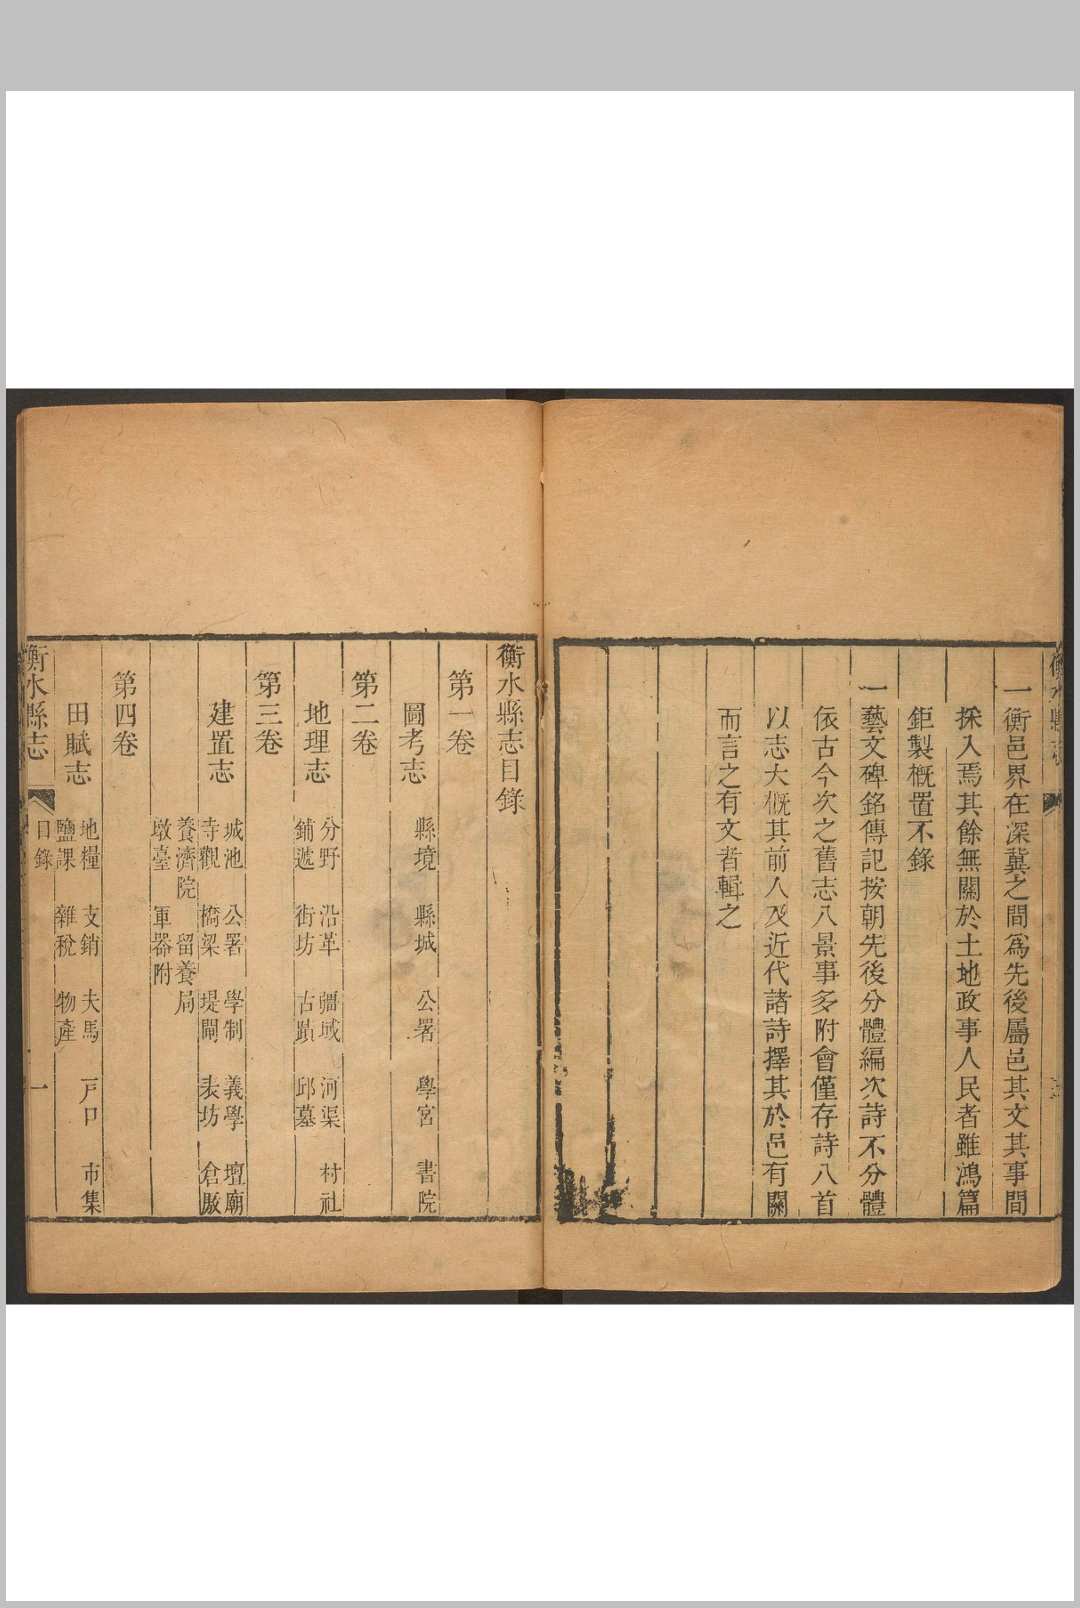 一衡邑界在深冀之間為先後屬邑其文其事間
採入焉其餘無關於土地政事人民者雖鴻篇
鉅製概置不錄
一藝文碑銘傳記按朝先後分體編次詩不分體
依古今次之舊志八景事多附會僅存詩八首
以志大概其前人及近代諸詩擇其於邑有關
而言之有文者輯之
衡水縣志目錄
第一卷
圖考志
縣境 縣城 公署 學宮 書院
第二卷
地理志
分野 沿革 疆域 河渠 村社
鋪遞 街坊 古蹟 邱墓
第三卷
建置志
城池 公署 學制 義學 壇廟
寺觀 橋梁 堤閘 表坊 倉廒
養濟院 留養局
墩臺 軍器附
第四卷
田賦志
地糧 支銷 夫馬 戶口 市集
鹽課 雜稅 物產
衡水縣志 目錄 一